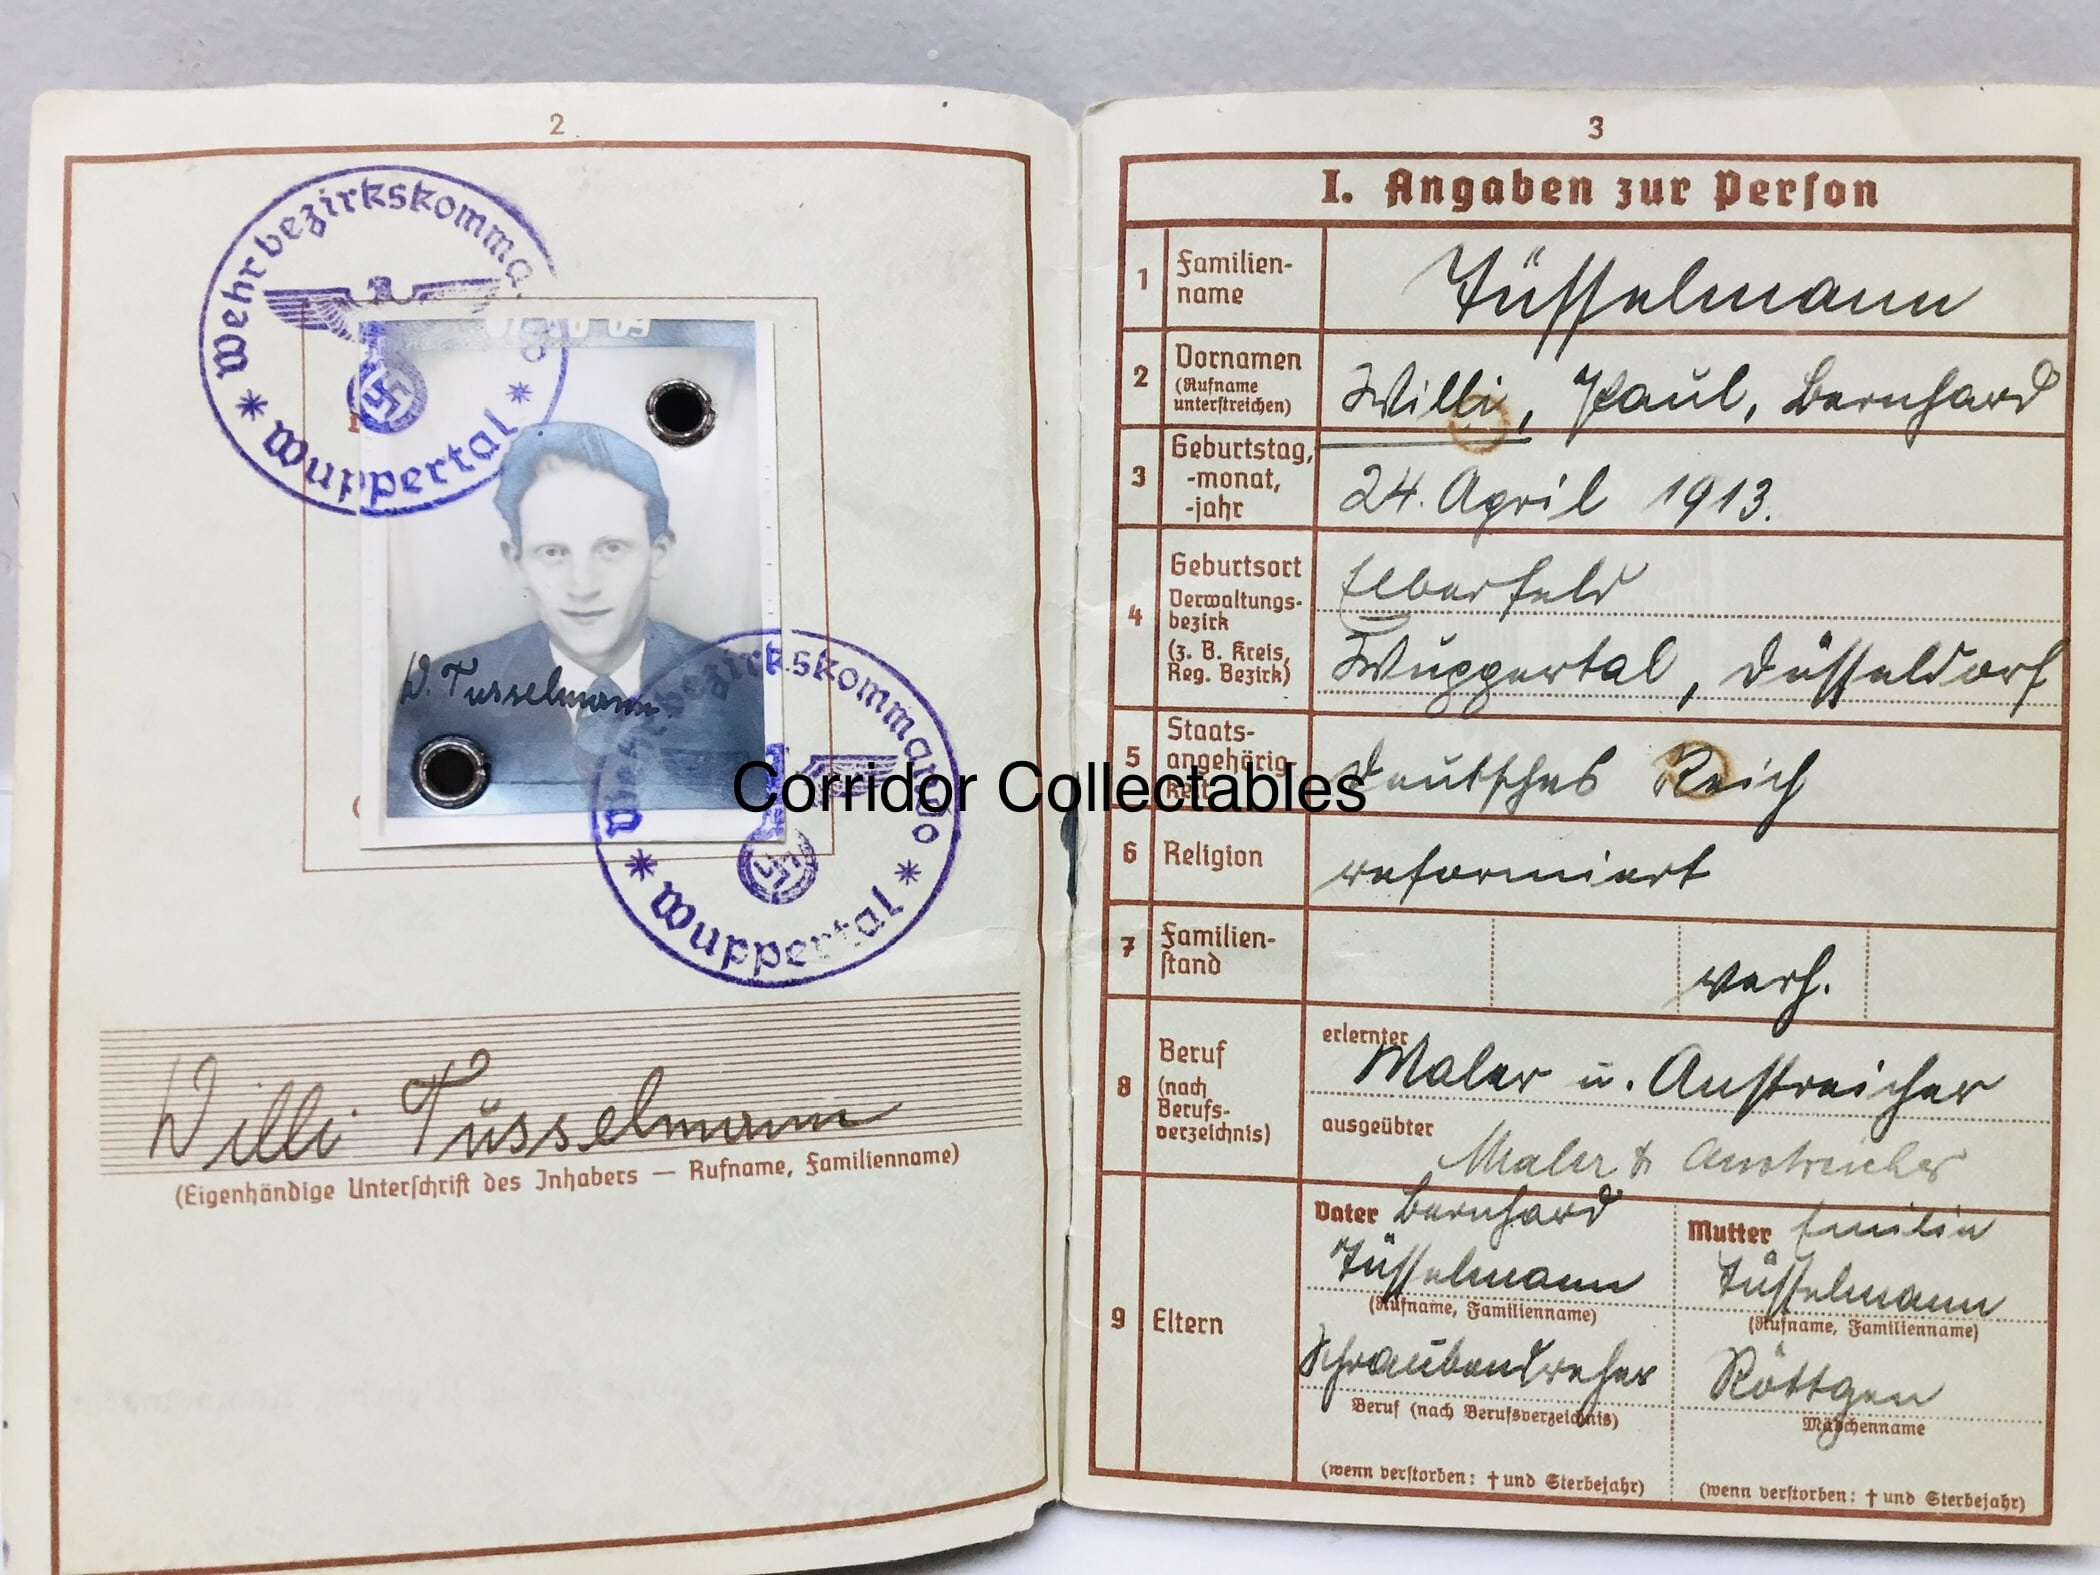 2
Wehrbezirkskomma
o
* Wuppertal *
W. Tüsselmann
Wehrbezirkskommando
* Wuppertal *
Willi Tüsselmann
(Eigenhändige Unterschrift des Inhabers — Rufname, Familienname)
Corridor Collectables
3
I. Angaben zur Person
1 Familien-
name
Tüsselmann
2 Vornamen
(Rufname
unterstreichen)
Willi, Paul, Bernhard
3 Geburtstag,
-monat,
-jahr
24. April 1913.
4 Geburtsort
Verwaltungs-
bezirk
(z. B. Kreis,
Reg. Bezirk)
Elberfeld
Wuppertal, Düsseldorf
5 Staats-
angehörig-
keit
Deutsches Reich
6 Religion
reformiert
7 Familien-
stand
verh.
8 Beruf
(nach
Berufs-
verzeichnis)
erlernter
Maler u. Anstreicher
ausgeübter
Maler & Anstreicher
9 Eltern
Vater Bernhard
Tüsselmann
(Rufname, Familienname)
Schraubendreher
Beruf (nach Berufsverzeichnis)
(wenn verstorben: † und Sterbejahr)
Mutter Emilie
Tüsselmann
(Rufname, Familienname)
Röttgen
Mädchenname
(wenn verstorben: † und Sterbejahr)